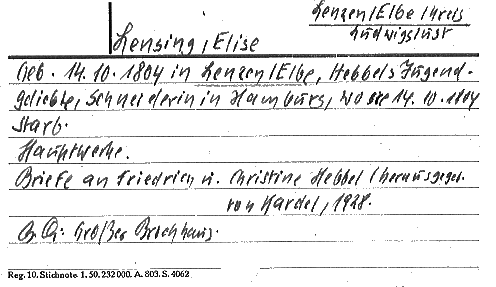 Lenzen/Elbe/Kreis
Ludwigslust
Lensing, Elise
Geb. 14.10.1804 in Lenzen/Elbe, Hebbels Jugend-
geliebte, Schneiderin in Hamburg, wo sie 14.10.1804
starb.
Hauptwerke.
Briefe an Friedrich u. Christine Hebbel (herausgegeb.
von Kardel, 1928.
B.Q: Großer Brockhaus.
Reg. 10. Stichnote 1. 50. 232 000. A. 803. S. 4062